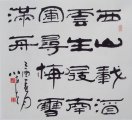 西山載酒
雲生屐南
浦尋梅雪
滿舟